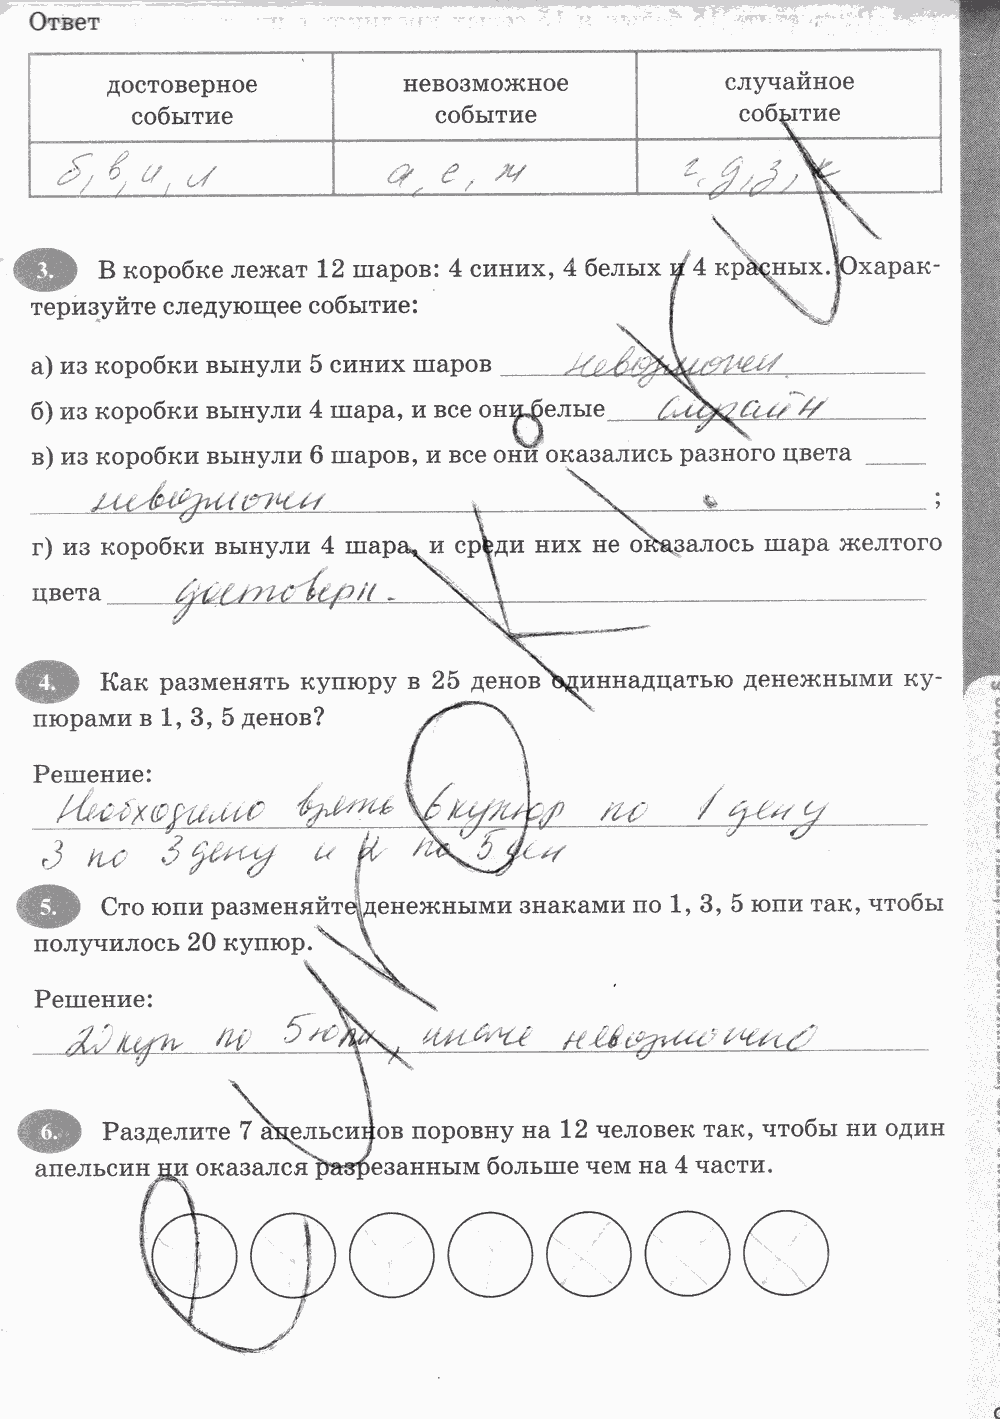 Ответ
достоверное событие
невозможное событие
случайное событие
б, в, и, л
а, е, ж
г, д, з, к
3. В коробке лежат 12 шаров: 4 синих, 4 белых и 4 красных. Охарак-
теризуйте следующее событие:
а) из коробки вынули 5 синих шаров невозможн.
б) из коробки вынули 4 шара, и все они белые случайн
в) из коробки вынули 6 шаров, и все они оказались разного цвета
невозможн ;
г) из коробки вынули 4 шара, и среди них не оказалось шара желтого
цвета достоверн.
4. Как разменять купюру в 25 денов одиннадцатью денежными ку-
пюрами в 1, 3, 5 денов?
Решение:
Необходимо взять 6 купюр по 1 дену
3 по 3 дену и 2 по 5 ден
5. Сто юпи разменяйте денежными знаками по 1, 3, 5 юпи так, чтобы
получилось 20 купюр.
Решение:
20 куп по 5 юпи, иначе невозможно
6. Разделите 7 апельсинов поровну на 12 человек так, чтобы ни один
апельсин ни оказался разрезанным больше чем на 4 части.